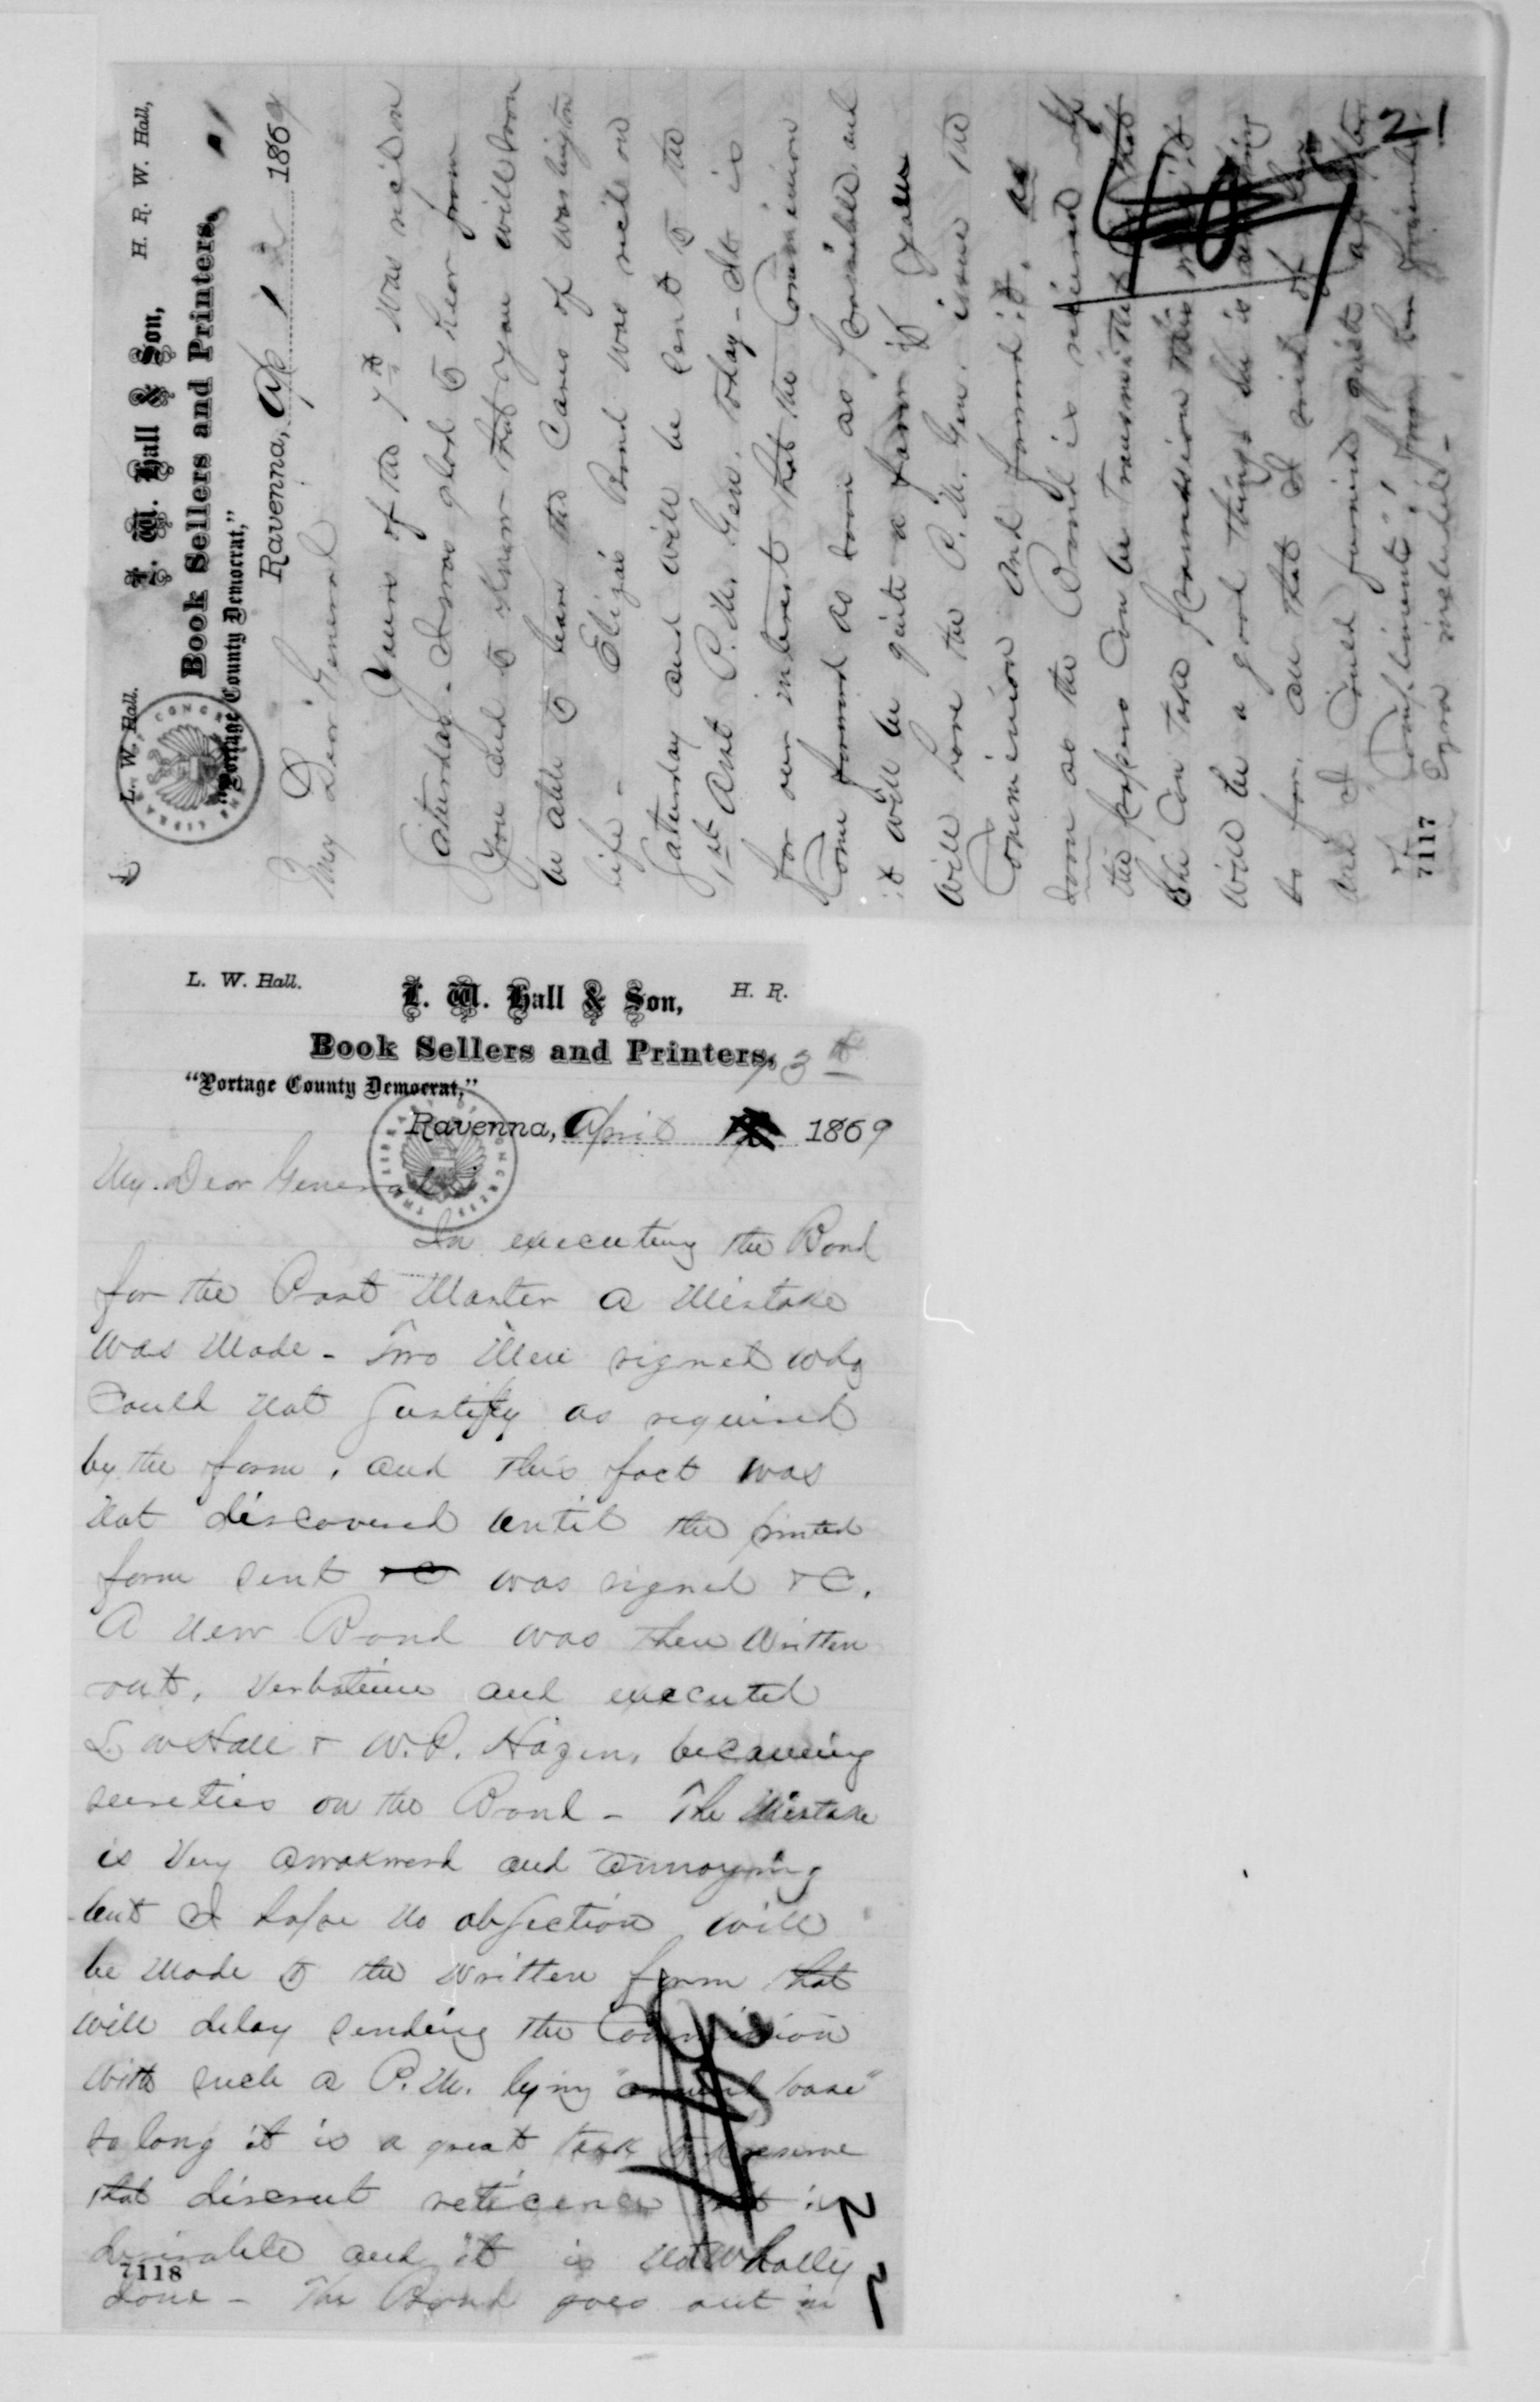 L. W. Hall.
L. W. Hall & Son,
H. R. W. Hall,
Book Sellers and Printers,
"Portage County Democrat,"
Ravenna, Ap 12 1869
My Dear General
Yours of the 7th was rec'd on
Saturday. I was glad to hear from
you and to know that you will soon
be able to leave the Cares of Washington
life - Eliza's Bond was rec'd on
Saturday and will be sent to the
1st Asst P. M. Gen. today - It is
for our interest that the Commission
Come forward as soon as possible and
it will be quite a favor if you
will have the P. M. Gen. issue the
Commission and forward it, as
soon as the Bond is returned
the papers can be transmitted that
She can take possession this
will be a good thing she is
to for, all that I said of
and I could furnish quite
Compliments, from her friends
included -
21
7117
L. W. Hall.
L. W. Hall & Son,
H. R.
Book Sellers and Printers,
"Portage County Democrat,"
13th
Ravenna, April 1869
My Dear General
In executing the Bond
for the Post Master a Mistake
was Made - Two Men signed who
Could not Justify as required
by the form, and this fact was
not discovered until the printed
form sent &C was signed &C.
A new Bond was then Written
out, Verbatim and executed
L. W Hall & W. P. Hazen, becoming
sureties on the Bond - The Mistake
is Very awkward and annoying
but I hope no objection will
be Made to the Written form that
will delay sending the Commission
With such a P. M. lying "around loose"
so long it is a great task to preserve
that discreet reticence that is
desirable and it is not Wholly
done - The Bond goes out in
22
7118